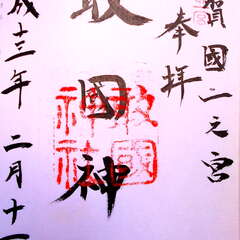 賀國一之宮
奉拝
敢國神
敢國
神社
成十三年 二月十一